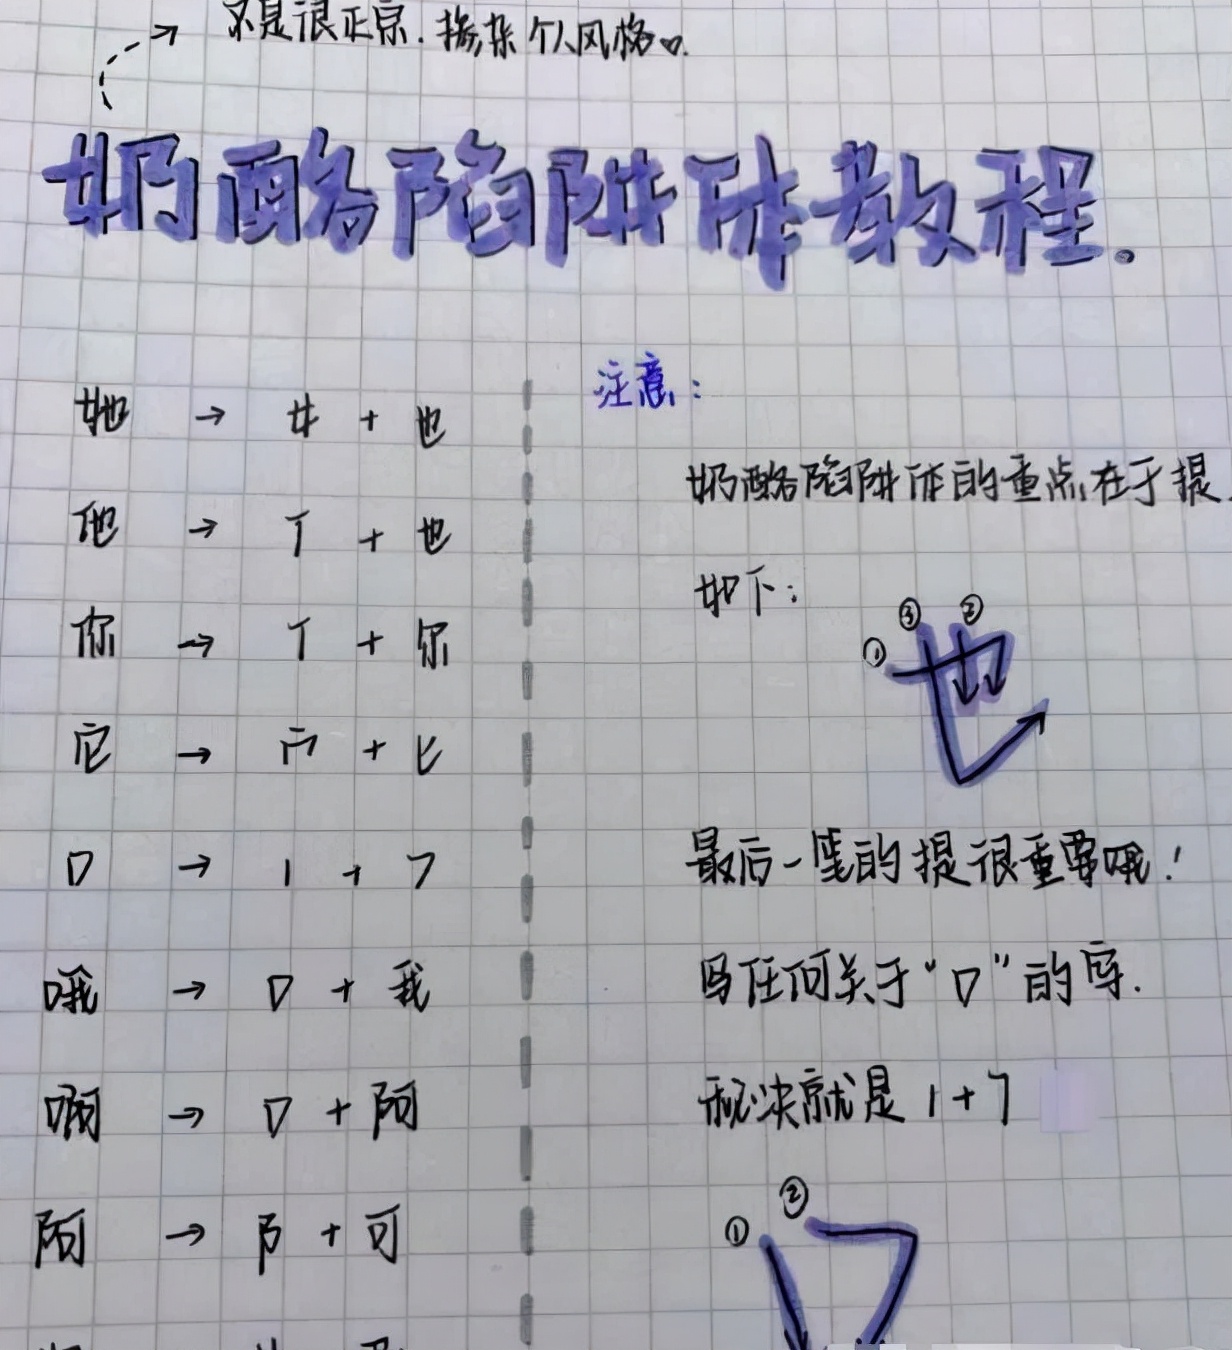 不是很正宗.掺杂个人风格
奶酪陷阱体教程.
她 → 女 + 也
他 → 亻 + 也
你 → 亻 + 尔
它 → 宀 + 匕
口 → 1 + 7
哦 → 口 + 我
啊 → 口 + 阿
阿 → 阝 + 可
注意:
奶酪陷阱体的重点在于提
如下:
① ③ ② 也
最后一笔的提很重要哦!
写任何关于“口”的字.
秘诀就是 1 + 7
① ② 口